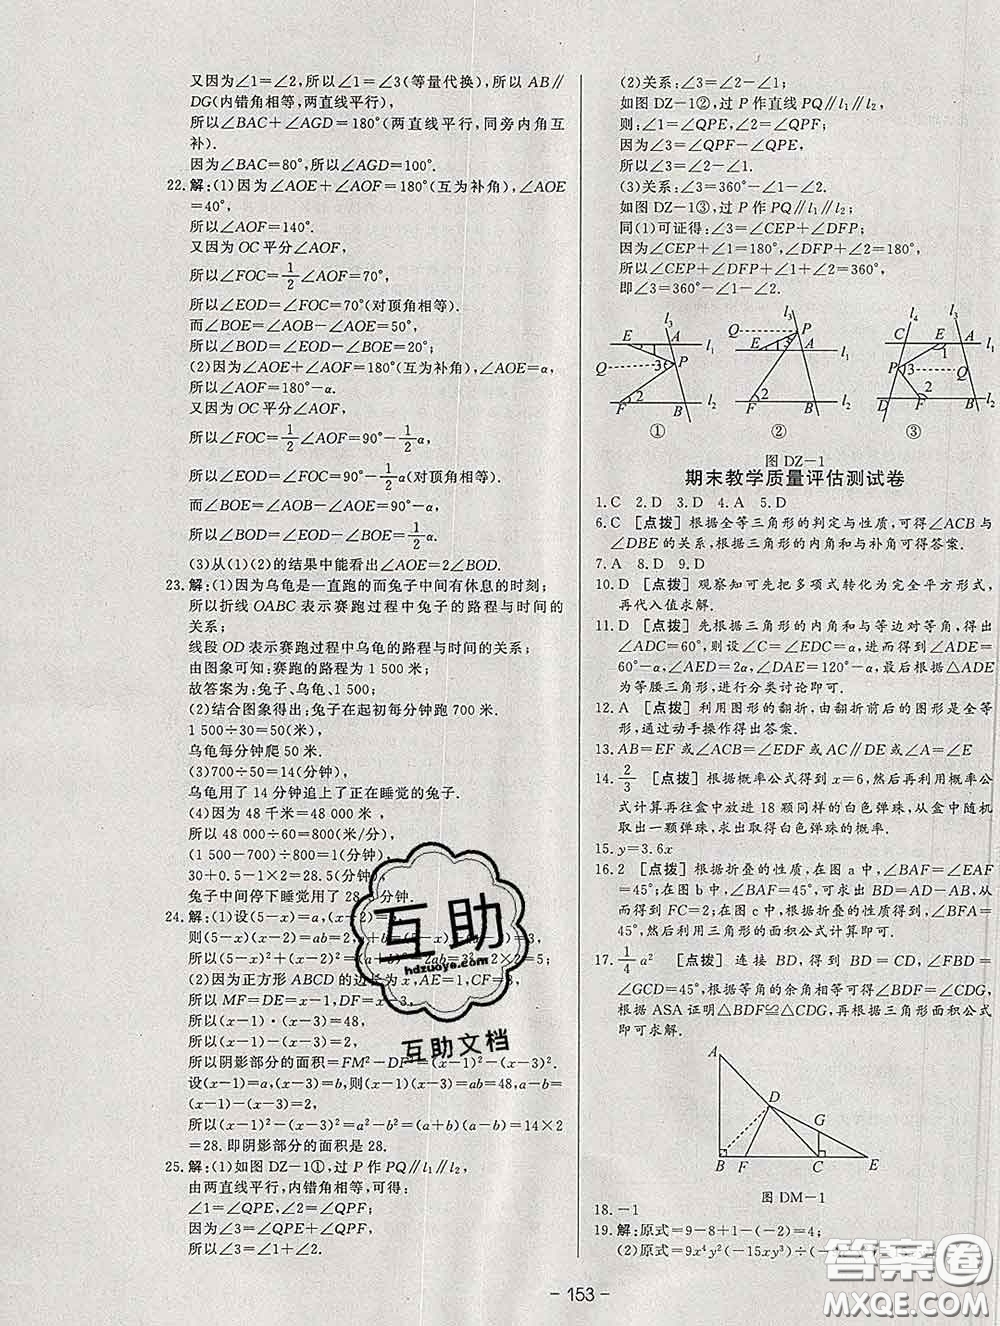 又因为∠1=∠2,所以∠1=∠3(等量代换),所以 AB∥
DG(内错角相等,两直线平行),
所以∠BAC+∠AGD=180°(两直线平行,同旁内角互
补).
因为∠BAC=80°,所以∠AGD=100°.
22.解:(1)因为∠AOE+∠AOF=180°(互为补角),∠AOE
=40°,
所以∠AOF=140°.
又因为 OC 平分∠AOF,
所以∠FOC=1/2∠AOF=70°,
所以∠EOD=∠FOC=70°(对顶角相等).
而∠BOE=∠AOB-∠AOE=50°,
所以∠BOD=∠EOD-∠BOE=20°;
(2)因为∠AOE+∠AOF=180°(互为补角),∠AOE=α,
所以∠AOF=180°-α.
又因为 OC 平分∠AOF,
所以∠FOC=1/2∠AOF=90°-1/2α,
所以∠EOD=∠FOC=90°-1/2α(对顶角相等).
而∠BOE=∠AOB-∠AOE=90°-α,
所以∠BOD=∠EOD-∠BOE=1/2α;
(3)从(1)(2)的结果中能看出∠AOE=2∠BOD.
23.解:(1)因为乌龟是一直跑的而兔子中间有休息的时刻;
所以折线 OABC 表示赛跑过程中兔子的路程与时间的
关系;
线段 OD 表示赛跑过程中乌龟的路程与时间的关系;
由图象可知:赛跑的路程为 1 500 米;
故答案为:兔子、乌龟、1 500;
(2)结合图象得出:兔子在起初每分钟跑 700 米.
1 500÷30=50(米),
乌龟每分钟爬 50 米.
(3)700÷50=14(分钟),
乌龟用了 14 分钟追上了正在睡觉的兔子.
(4)因为 48 千米=48 000 米,
所以 48 000÷60=800(米/分),
(1 500-700)÷800=1(分钟),
30+0.5-1×2=28.5(分钟),
兔子中间停下睡觉用了 28.5 分钟.
24.解:(1)设(5-x)=a,(x-2)=
则(5-x)(x-2)=ab=2,a+b=(5-x)+(x-2)=3,
所以(5-x)²+(x-2)²=(a+b)²-2ab=3²-2×2=5;
(2)因为正方形 ABCD 的边长为 x,AE=1,CF=3,
所以 MF=DE=x-1,DF=x-3,
所以(x-1)·(x-3)=48,
所以(x-1)-(x-3)=2,
所以阴影部分的面积=FM²-DF²=(x-1)²-(x-3)².
设(x-1)=a,(x-3)=b,则(x-1)(x-3)=ab=48,a-b=
(x-1)-(x-3)=2,
所以(x-1)²-(x-3)²=a²-b²=(a+b)(a-b)=14×2
=28.即阴影部分的面积是 28.
25.解:(1)如图 DZ-1①,过 P 作 PQ∥l₁∥l₂,
由两直线平行,内错角相等,可得:
∠1=∠QPE,∠2=∠QPF;
因为∠3=∠QPE+∠QPF,
所以∠3=∠1+∠2.
(2)关系:∠3=∠2-∠1;
如图 DZ-1②,过 P 作直线 PQ∥l₁∥l₂,
则:∠1=∠QPE,∠2=∠QPF;
因为∠3=∠QPF-∠QPE,
所以∠3=∠2-∠1.
(3)关系:∠3=360°-∠1-∠2.
如图 DZ-1③,过 P 作 PQ∥l₁∥l₂;
同(1)可证得:∠3=∠CEP+∠DFP;
因为∠CEP+∠1=180°,∠DFP+∠2=180°,
所以∠CEP+∠DFP+∠1+∠2=360°,
即∠3=360°-∠1-∠2.
l₃ E A l₁ Q P 3 F 2 B l₂ ①
l₃ Q P E 3 A l₁ F 2 B l₂ ②
l₄ l₃ C E A l₁ 1 P 3 Q 2 D F B l₂ ③
图 DZ-1
期末教学质量评估测试卷
1.C 2.D 3.D 4.A 5.D
6.C [点拨] 根据全等三角形的判定与性质,可得∠ACB
与∠DBE的关系,根据三角形的内角和与补角可得答案.
7.A 8.D 9.D
10.D [点拨] 观察知可先把多项式转化为完全平方形式,
再代入值求解.
11.D [点拨] 先根据三角形的内角和与等边对等角,得出
∠ADC=α,则设∠C=∠EDC=α,进而得到∠ADE=
60°-α,∠AED=2α,∠DAE=120°-α,最后根据△ADE
为等腰三角形,进行分类讨论即可.
12.A [点拨] 利用图形的翻折,由翻折前后的图形是全等
形,通过动手操作得出答案.
13.AB=EF 或∠ACB=∠EDF 或 AC∥DE 或∠A=∠E
14.2/3 [点拨] 根据概率公式得到 x=6,然后再利用概率公
式计算再往盒中放进 18 颗同样的白色弹珠,从盒中随机
取出一颗弹珠,求出取得白色弹珠的概率.
15.y=3.6x
16.2 [点拨] 根据折叠的性质,在图 a 中,∠BAF=∠EAF
=45°;在图 b 中,∠BAF=45°,可求出 BD=AD-AB=2,从
而得到 FC=2;在图 c 中,根据平行线的性质,∠BFA=
45°,然后利用三角形的面积公式计算即可.
17.1/4a² [点拨] 连接 BD,得到 BD=CD,∠FBD=
∠GCD=45°,根据等角的余角相等可得∠BDF=∠CDG,
根据 ASA 证明△BDF≌△CDG,再根据三角形面积公式
即可求解.
A D G B F C E
图 DM-1
18.-1
19.解:原式=9-8+1-(-2)=4;
(2)原式=9x⁴y²(-15xy³)÷(-
互助
hdzuoye.com
互助文档
答案圈
MXQE.COM
- 153 -